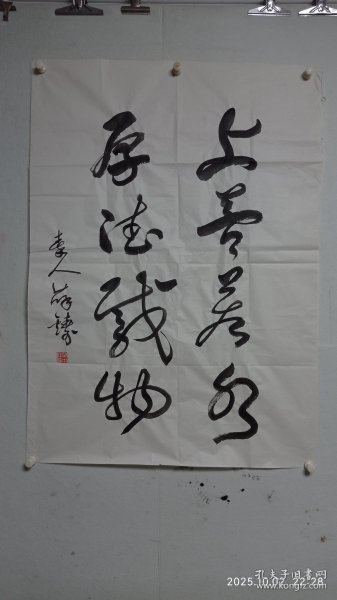 上善若水
厚德载物
2025.10.02 22:28
孔夫子旧书网